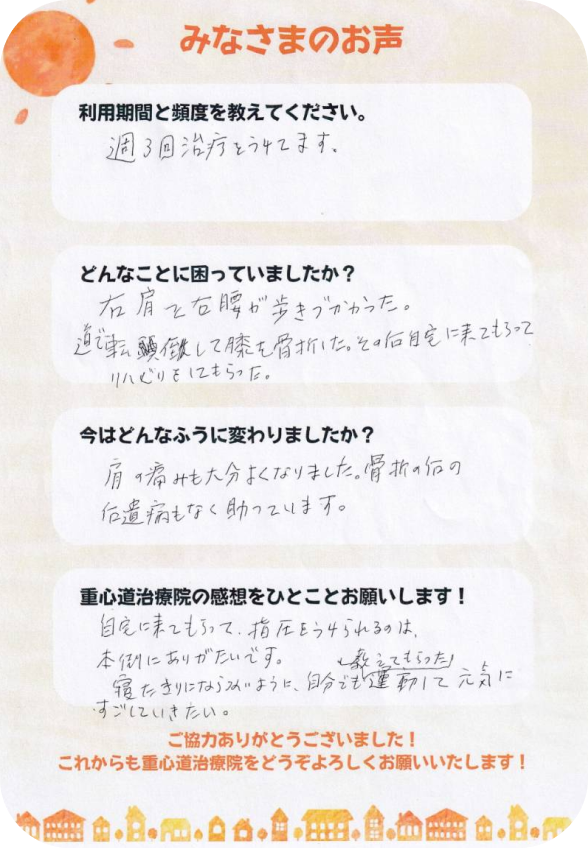 みなさまのお声
利用期間と頻度を教えてください。
週3回治疗をうけてます。
どんなことに困っていましたか？
右肩と右腰が歩きづかかった。
道で転倒して膝を骨折した。その后自宅に来てもらって
リハビリをしてもらった。
今はどんなふうに変わりましたか？
肩の痛みも大分よくなりました。骨折の后の
后遺病もなく助っています。
重心道治療院の感想をひとことお願いします！
自宅に来てもらって、指圧をうけられるのは、
本倒にありがたいです。
教えてもらった
寝たきりにならないように、自分でも運動して元気に
すごしていきたい。
ご協力ありがとうございました！
これからも重心道治療院をどうぞよろしくお願いいたします！